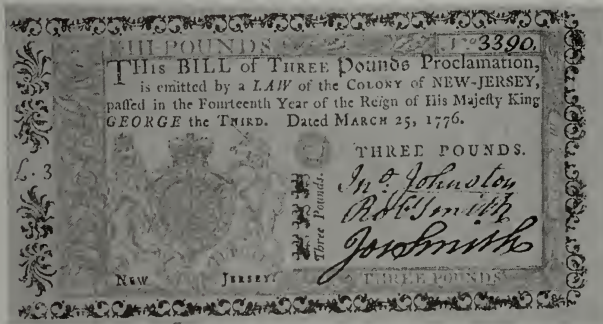 III POUNDS No 3390.
THIS BILL of THREE Pounds Proclamation,
is emitted by a LAW of the COLONY of NEW-JERSEY,
paſſed in the Fourteenth Year of the Reign of His Majeſty King
GEORGE the THIRD. Dated MARCH 25, 1776.
THREE POUNDS.
£. 3
Three Pounds.
Jno. Johnston
Robt Smith
Jos Smith
NEW JERSEY.
THREE POUNDS